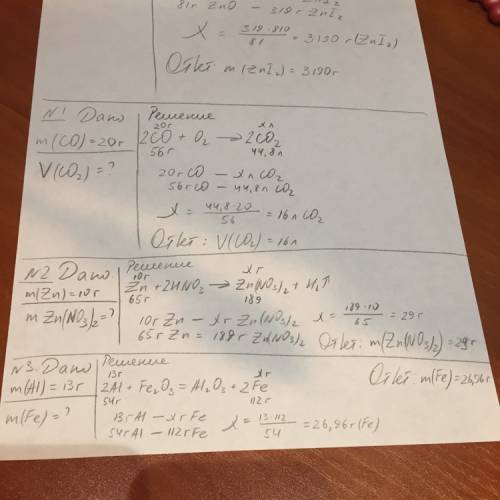 81г ZnO – 319г ZnI₂
X = 319·810 / 81 = 3190 г (ZnI₂)
Ответ: m(ZnI₂) = 3190г
N1 Дано
m(CO) = 20г
V(CO₂) = ?
Решение
20г xл
2CO + O₂ → 2CO₂
56г 44,8л
20г CO – xл CO₂
56г CO – 44,8л CO₂
X = 44,8·20 / 56 = 16л CO₂
Ответ: V(CO₂) = 16л
N2 Дано
m(Zn) = 10г
m Zn(NO₃)₂ = ?
Решение
10г xг
Zn + 2HNO₃ → Zn(NO₃)₂ + H₂↑
65г 189
10г Zn – xг Zn(NO₃)₂
65г Zn = 189г Zn(NO₃)₂
X = 189·10 / 65 = 29г
Ответ: m(Zn(NO₃)₂) = 29г
N3. Дано
m(Al) = 13г
m(Fe) = ?
Решение
13г xг
2Al + Fe₂O₃ = Al₂O₃ + 2Fe
54г 112г
13г Al – xг Fe
54г Al – 112г Fe
X = 13·112 / 54 = 26,96г (Fe)
Ответ: m(Fe) = 26,96г